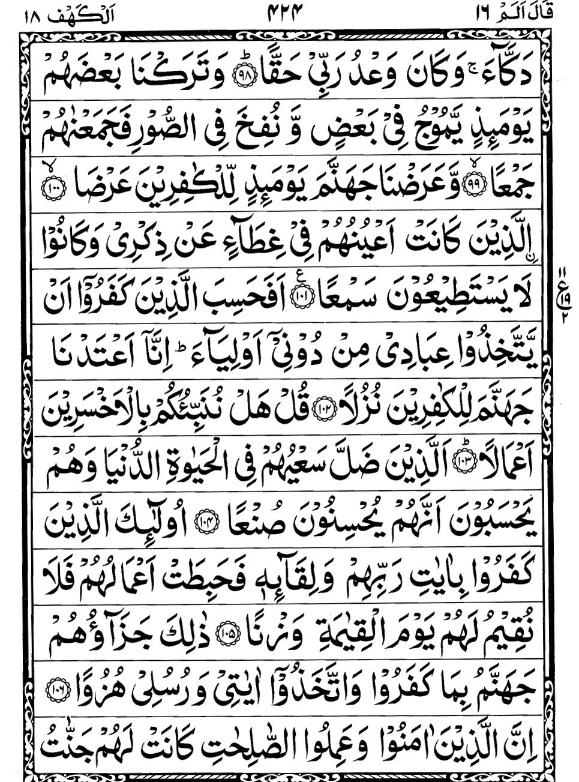 قَالَ اَلَمْ ١٦ ٤٢٤ اَلْكَهْف ١٨
دَكَّآءَ ۚ وَكَانَ وَعْدُ رَبِّیْ حَقًّا ؕ ﴿۹۸﴾ وَتَرَكْنَا بَعْضَهُمْ
يَوْمَئِذٍ يَّمُوْجُ فِیْ بَعْضٍ وَّ نُفِخَ فِی الصُّوْرِ فَجَمَعْنٰهُمْ
جَمْعًا ﴿۹۹﴾ۙ وَّعَرَضْنَا جَهَنَّمَ يَوْمَئِذٍ لِّلْكٰفِرِيْنَ عَرْضَا ﴿۱۰۰﴾ۙ
الَّذِيْنَ كَانَتْ اَعْيُنُهُمْ فِیْ غِطَآءٍ عَنْ ذِكْرِیْ وَكَانُوْا
لَا يَسْتَطِيْعُوْنَ سَمْعًا ﴿۱۰۱﴾ع اَفَحَسِبَ الَّذِيْنَ كَفَرُوْٓا اَنْ
يَّتَّخِذُوْا عِبَادِیْ مِنْ دُوْنِیْٓ اَوْلِيَآءَ ؕ اِنَّآ اَعْتَدْنَا
جَهَنَّمَ لِلْكٰفِرِيْنَ نُزُلًا ﴿۱۰۲﴾ قُلْ هَلْ نُنَبِّئُكُمْ بِالْاَخْسَرِيْنَ
اَعْمَالًا ؕ ﴿۱۰۳﴾ اَلَّذِيْنَ ضَلَّ سَعْيُهُمْ فِی الْحَيٰوةِ الدُّنْيَا وَهُمْ
يَحْسَبُوْنَ اَنَّهُمْ يُحْسِنُوْنَ صُنْعًا ﴿۱۰۴﴾ اُولٰٓئِكَ الَّذِيْنَ
كَفَرُوْا بِاٰيٰتِ رَبِّهِمْ وَلِقَآئِهٖ فَحَبِطَتْ اَعْمَالُهُمْ فَلَا
نُقِيْمُ لَهُمْ يَوْمَ الْقِيٰمَةِ وَزْنًا ﴿۱۰۵﴾ ذٰلِكَ جَزَآؤُهُمْ
جَهَنَّمُ بِمَا كَفَرُوْا وَاتَّخَذُوْٓا اٰيٰتِیْ وَرُسُلِیْ هُزُوًا ﴿۱۰۶﴾
اِنَّ الَّذِيْنَ اٰمَنُوْا وَعَمِلُوا الصّٰلِحٰتِ كَانَتْ لَهُمْ جَنّٰتُ
١١
ع ١٩
٢